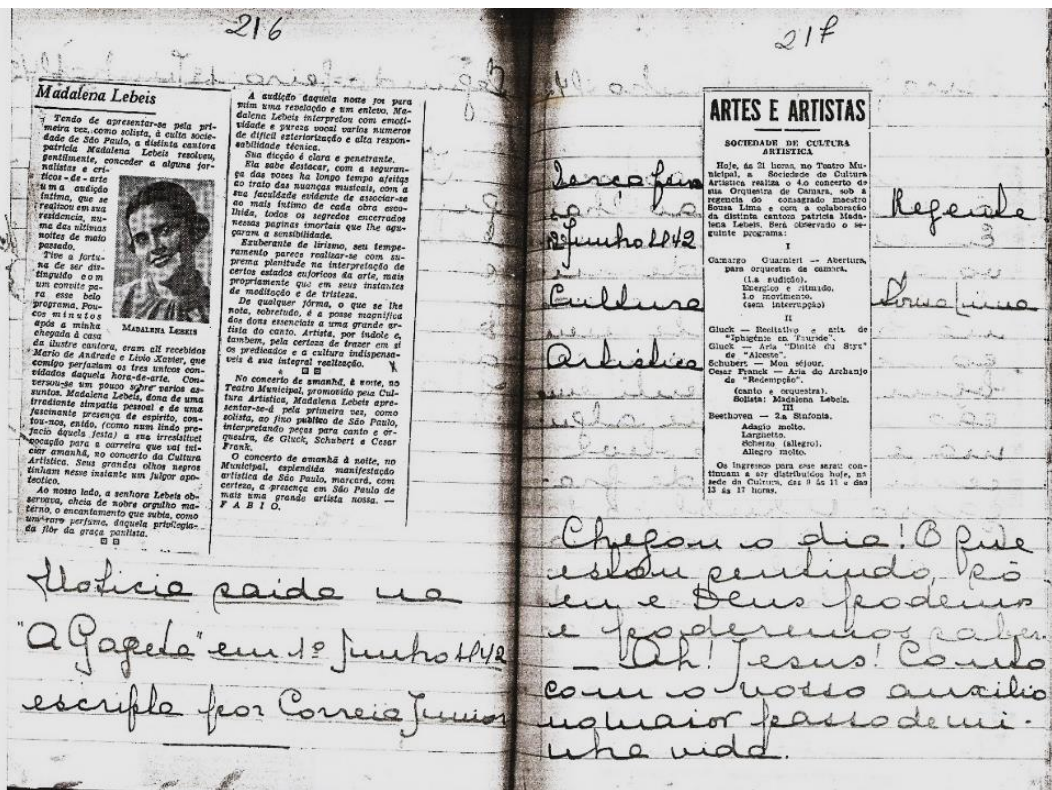 216
Madalena Lebeis
Tendo de apresentar-se pela pri-
meira vez, como solista, à culta socie-
dade de São Paulo, a distinta cantora
patricia Madalena Lebeis resolveu,
gentilmente, conceder a alguns jor-
nalistas e cri-
ticos-de-arte
uma audição
íntima, que se
realizou em sua
residencia, nu-
ma das ultimas
noites de maio
passado.
Tive a fortu-
na de ser dis-
tinguido com
um convite pa-
ra esse belo
programa. Pou-
cos minutos
após a minha
chegada à casa
MADALENA LEBEIS
da ilustre cantora, eram ali recebidos
Mario de Andrade e Livio Xavier, que
comigo perfaziam os tres unicos con-
vidados daquela hora-de-arte. Con-
versou-se um pouco sobre varios as-
suntos. Madalena Lebeis, dona de uma
irradiante simpatia pessoal e de uma
fascinante presença de espirito, con-
tou-nos, então, (como num lindo pre-
facio àquela festa) a sua irresistivel
vocação para a carreira que vai ini-
ciar amanhã, no concerto da Cultura
Artistica. Seus grandes olhos negros
tinham nesse instante um fulgor apo-
teotico.
Ao nosso lado, a senhora Lebeis ob-
servava, cheia de nobre orgulho ma-
terno, o encantamento que subia, como
um raro perfume, daquela privilegia-
da flôr da graça paulista.
A audição daquela noite foi para
mim uma revelação e um enlevo. Ma-
dalena Lebeis interpretou com emoti-
vidade e pureza vocal varios numeros
de dificil exteriorização e alta respon-
sabilidade técnica.
Sua dicção é clara e penetrante.
Ela sabe destacar, com a seguran-
ça das vozes ha longo tempo afeitas
ao trato das nuanças musicais, com a
sua faculdade evidente de associar-se
ao mais intimo de cada obra esco-
lhida, todos os segredos encerrados
nessas paginas imortais que lhe agu-
çaram a sensibilidade.
Exuberante de lirismo, seu tempe-
ramento parece realizar-se com su-
prema plenitude na interpretação de
certos estados euforicos da arte, mais
propriamente que em seus instantes
de meditação e de tristeza.
De qualquer fórma, o que se lhe
nota, sobretudo, é a posse magnifica
dos dons essenciais a uma grande ar-
tista do canto. Artista, por indole e,
tambem, pela certeza de trazer em si
os predicados e a cultura indispensa-
veis à sua integral realização.
No concerto de amanhã, à noite, no
Teatro Municipal, promovido pela Cul-
tura Artistica, Madalena Lebeis apre-
sentar-se-á pela primeira vez, como
solista, ao fino publico de São Paulo,
interpretando peças para canto e or-
questra, de Gluck, Schubert e Cesar
Frank.
O concerto de amanhã à noite, no
Municipal, esplendida manifestação
artistica de São Paulo, marcará, com
certeza, a presença em São Paulo de
mais uma grande artista nossa. —
FABIO.
Noticia saida na
"A Gazeta" em 1º Junho 1942
escripta por Correia Junior
217
ARTES E ARTISTAS
SOCIEDADE DE CULTURA
ARTISTICA
Hoje, ás 21 horas, no Teatro Mu-
nicipal, a Sociedade de Cultura
Artistica realiza o 4.o concerto de
sua Orquestra de Camara, sob a
regencia do consagrado maestro
Sousa Lima e com a colaboração
da distinta cantora patricia Mada-
lena Lebeis. Será observado o se-
guinte programa:
I
Camargo Guarnieri — Abertura,
para orquestra de camara.
(1.a audição).
Energico e ritmado.
1.o movimento.
(sem interrupção)
II
Gluck — Recitativo e aria de
"Iphigénie en Tauride".
Gluck — Aria "Dinité du Styx"
de "Alceste".
Schubert — Mon séjour.
Cesar Franck — Aria do Archanjo
de "Redempção".
(canto e orquestra).
Solista: Madalena Lebeis.
III
Beethoven — 2.a Sinfonia.
Adagio molto.
Larghetto.
Scherzo (allegro).
Allegro molto.
Os ingressos para esse serau con-
tinuam a ser distribuidos hoje, na
séde da Cultura, das 9 ás 11 e das
13 ás 17 horas.
Terça feira
2 Junho 1942
Cultura
Artistica
Regencia
Souza Lima
Chegou o dia! O que
estou sentindo, só
eu e Deus podemos
e poderemos saber.
— Ah! Jesus! Conto
com o vosso auxilio
no maior passo de mi-
nha vida.